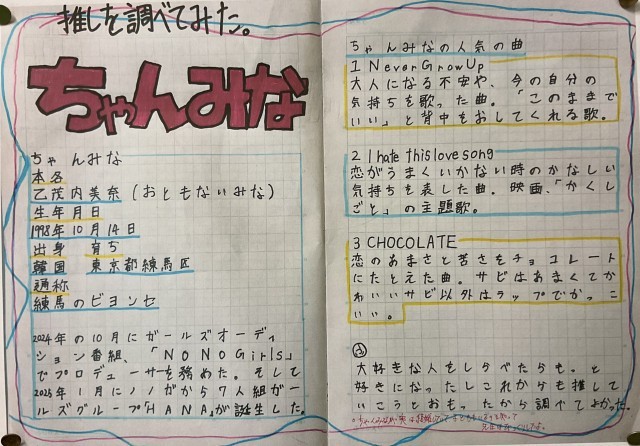 推しを調べてみた。
ちゃんみな
ちゃんみな
本名
乙茂内美奈(おともないみな)
生年月日
1998年10月14日
出身 育ち
韓国 東京都練馬区
通称
練馬のビヨンセ
2024年の10月にガールズオーディ
ション番組、「NONOGirls」
でプロデューサーを務めた。そして
2025年1月にノノガから7人組がー
ルズグループHANAが誕生した。
ちゃんみなの人気の曲
1 NeverGrowUp
大人になる不安や、今の自分の
気持ちを歌った曲。「このままで
いい」と背中をおしてくれる歌。
2 I hate this love song
恋がうまくいかない時のかなしい
気持ちを表した曲。映画、「かくし
ごと」の主題歌。
3 CHOCOLATE
恋のあまさと苦さをチョコレート
にたとえた曲。サビはあまくてか
わいいサビ以外はラップでかっこ
いい。
大好きな人をしらべたらも、と
好きになったしこれからも推して
いこうとおもったから調べてよかった。